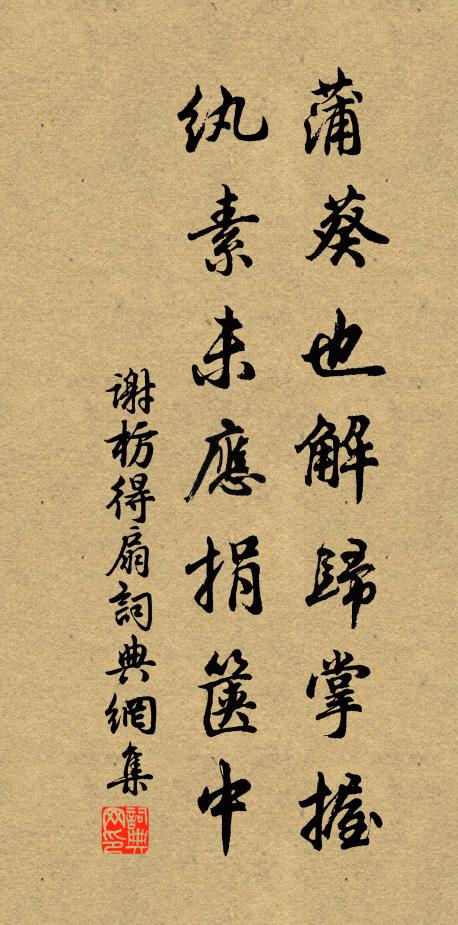 蒲葵也解歸掌握
紈素未應捐篋中
謝枋得扇詞典網集
詞典網印